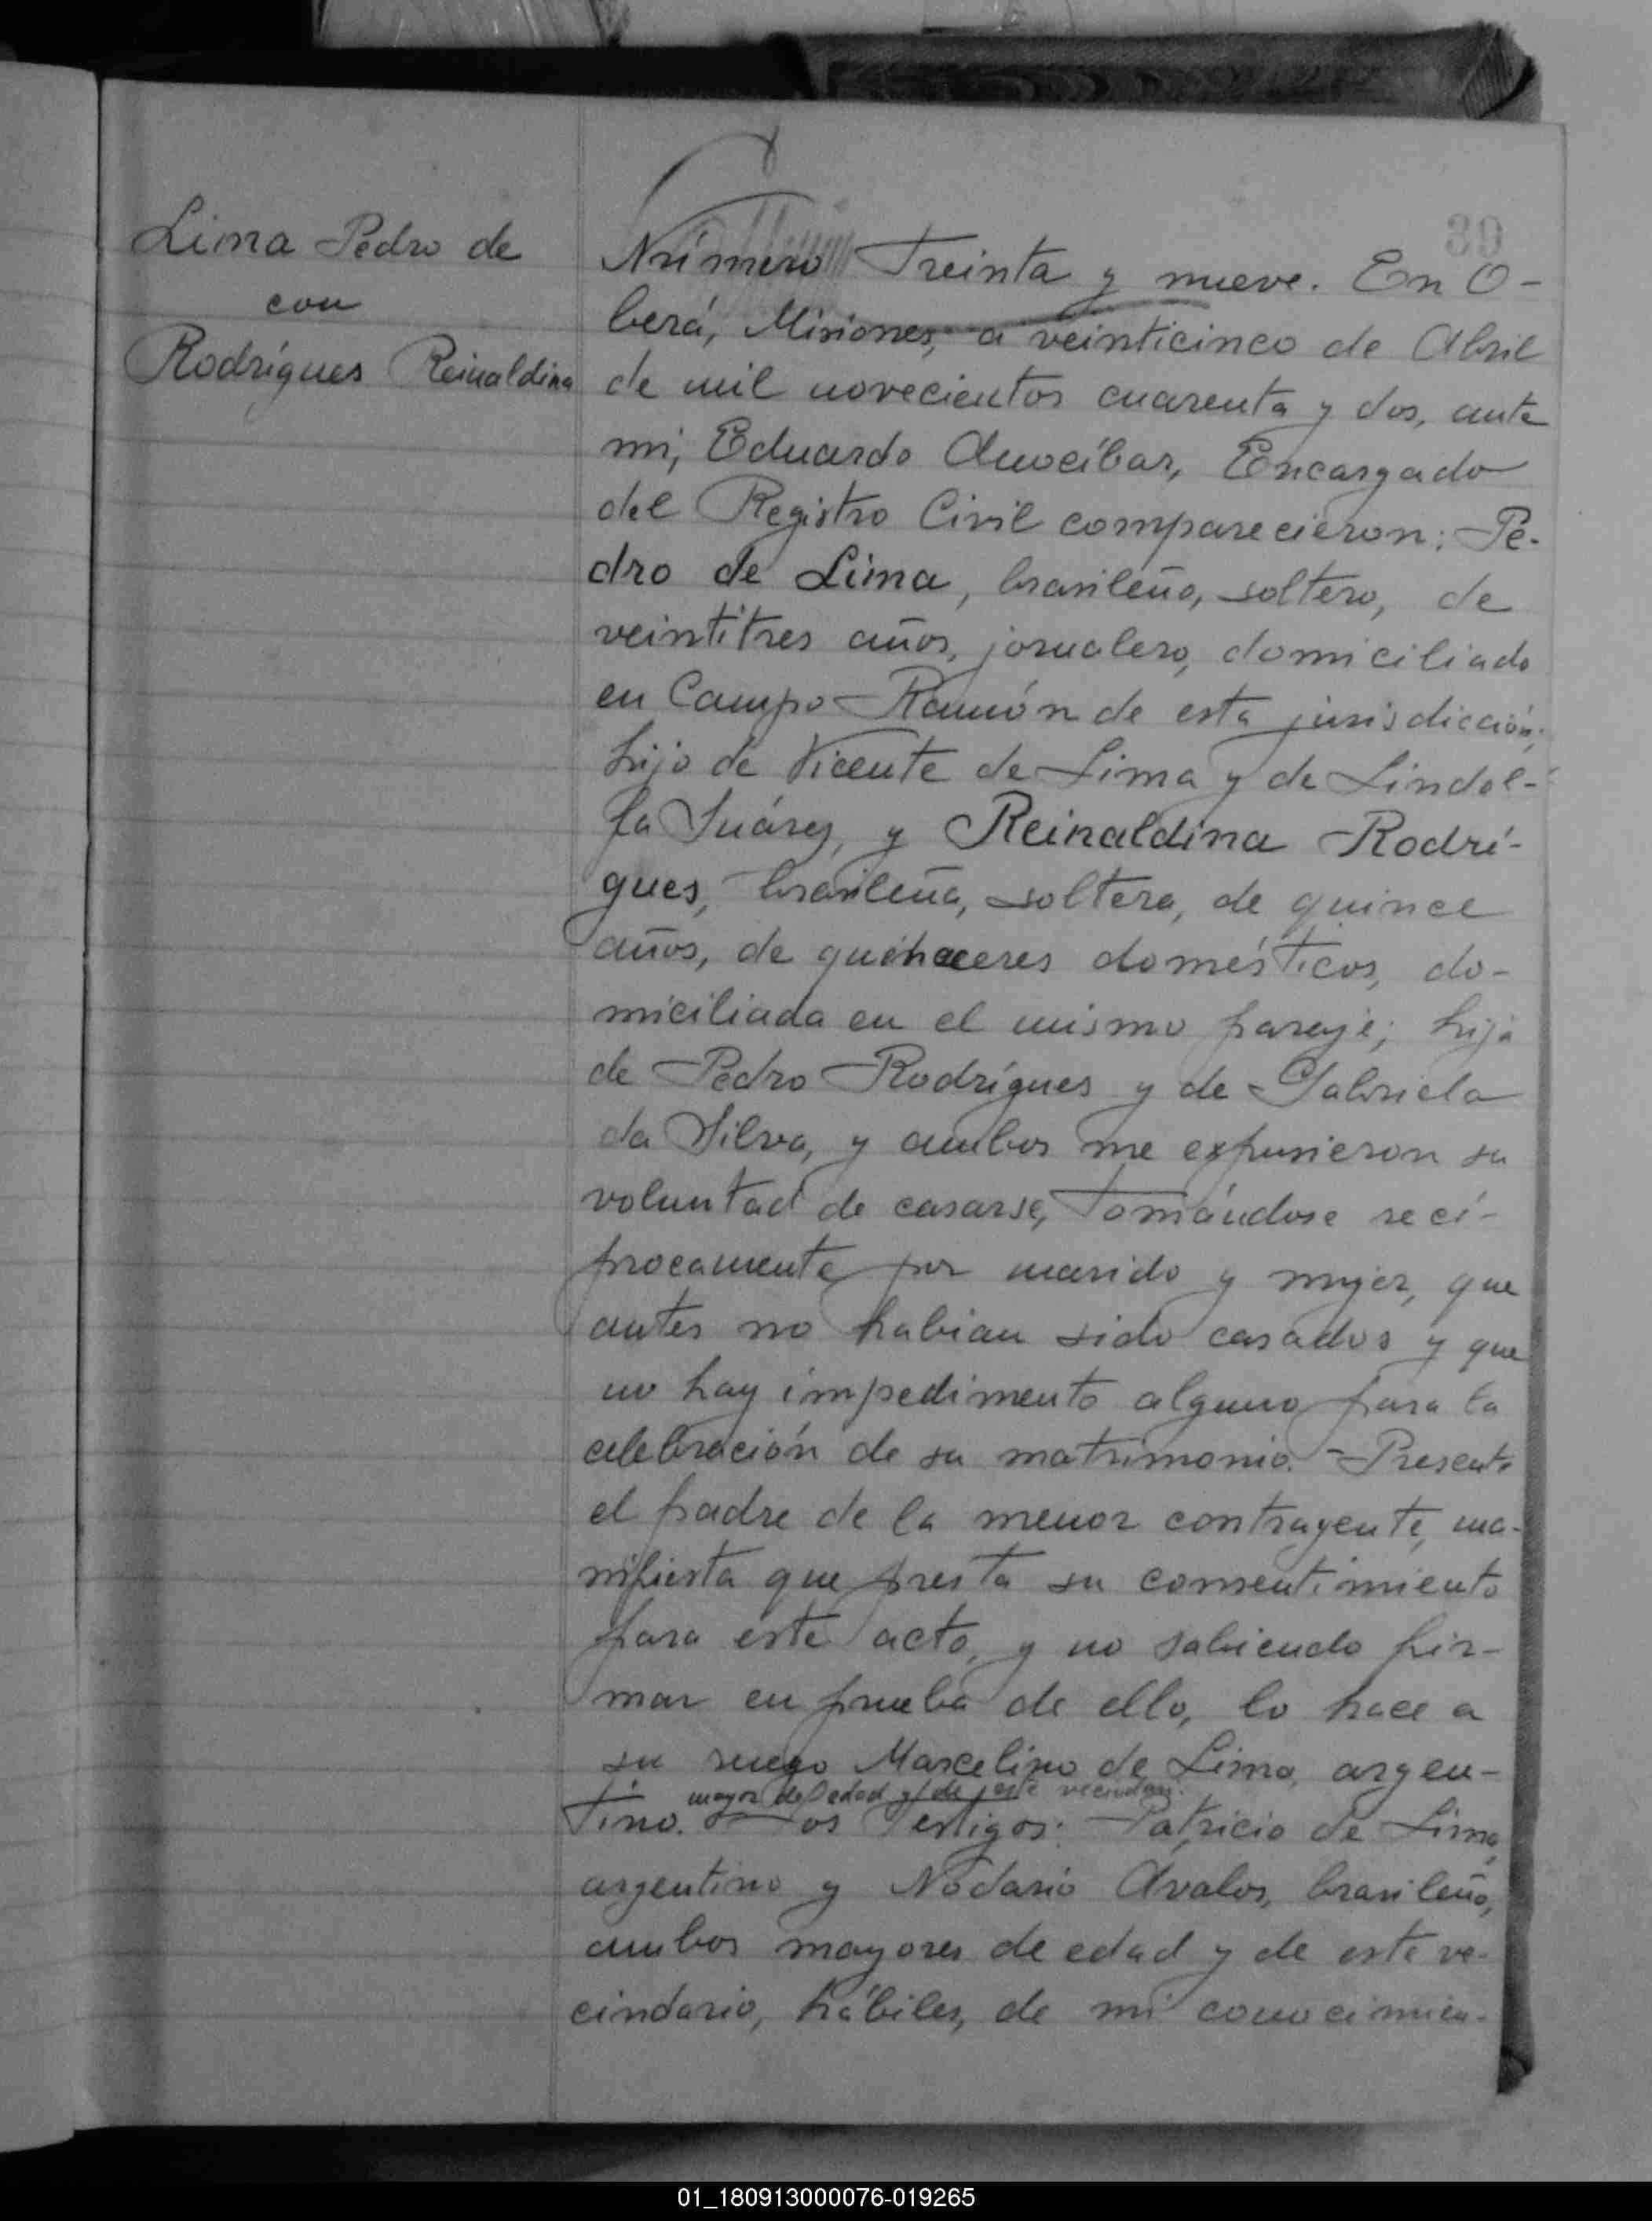 Lima Pedro de
con
Rodrígues Reinaldina
39
Número Treinta y nueve. En O-
berá, Misiones, a veinticinco de Abril
de mil novecientos cuarenta y dos, ante
mi, Eduardo Amocíbar, Encargado
del Registro Civil comparecieron: Pe-
dro de Lima, brasileño, soltero, de
veintitres años, jornalero, domiciliado
en Campo Ramón de esta jurisdicción;
hijo de Vicente de Lima y de Lindol-
fa Suárez, y Reinaldina Rodrí-
gues, brasileña, soltera, de quince
años, de quehaceres domésticos, do-
miciliada en el mismo paraje; hija
de Pedro Rodrígues y de Gabriela
da Silva, y ambos me expusieron su
voluntad de casarse, tomándose recí-
procamente por marido y mujer, que
antes no habian sido casados y que
no hay impedimento alguno para la
celebración de su matrimonio. Presente
el padre de la menor contrayente, ma-
nifiesta que presta su consentimiento
para este acto, y no sabiendo fir-
mar en prueba de ello, lo hace a
su ruego Marcelino de Lima, argen-
mayor de edad y de este vecindari.
tino. Los Testigos: Patricio de Lima,
argentino y Nodario Avalos, brasileño,
ambos mayores de edad y de este ve-
cindario, hábiles, de mi conocimien-
01_180913000076-019265